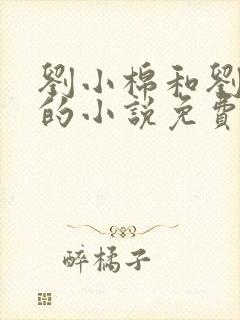 劉小棉和劉
的小說免費
醉橘子